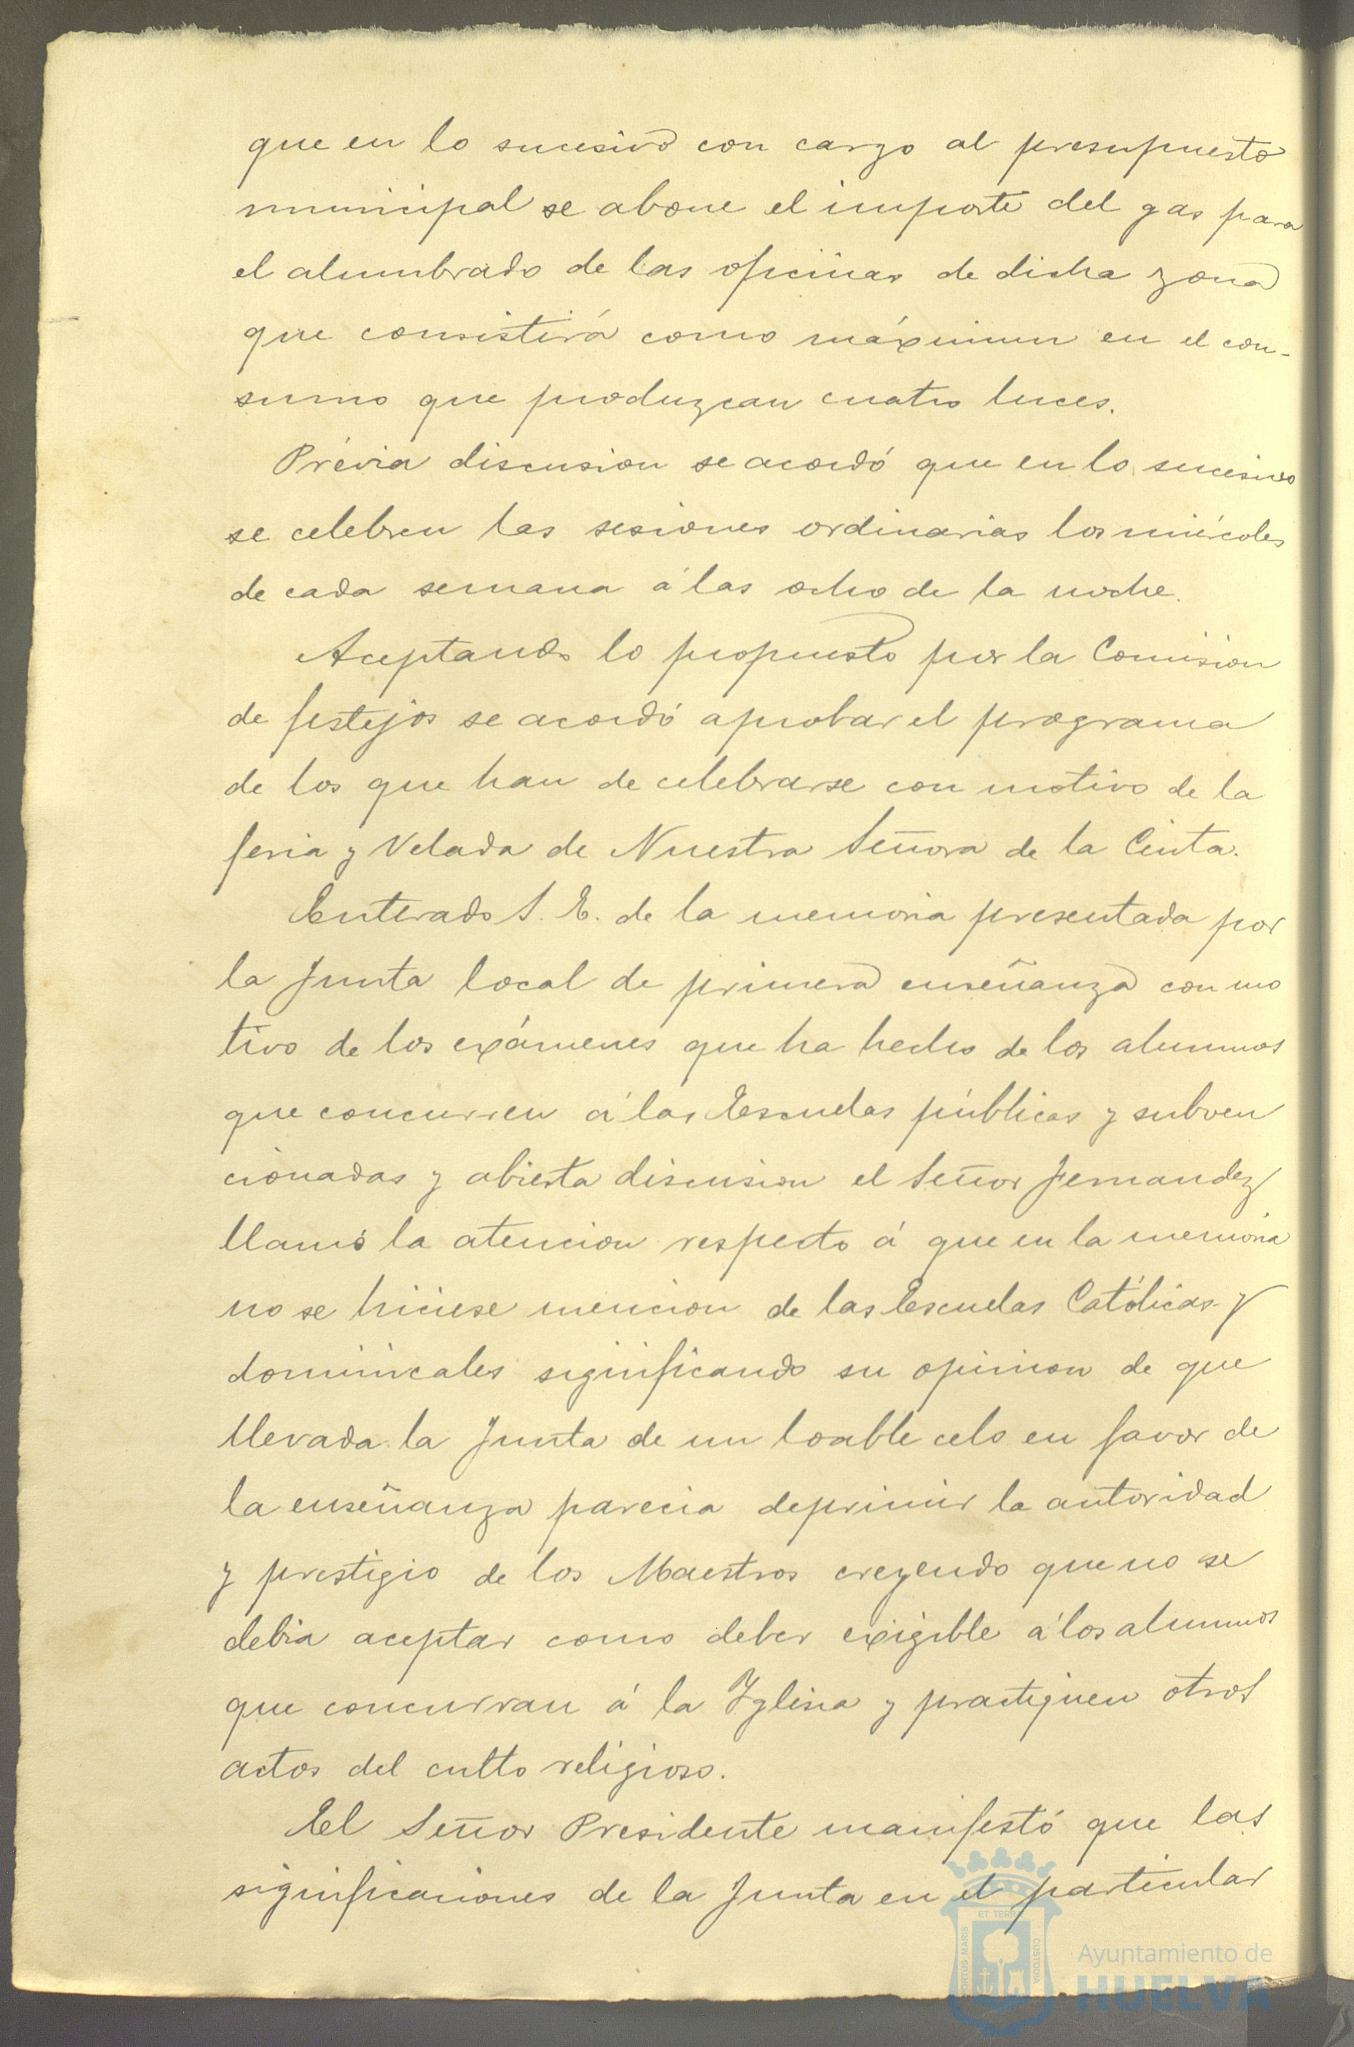 que en lo sucesivo con cargo al presupuesto
municipal se abone el importe del gas para
el alumbrado de las oficinas de dicha zona
que consistirá como máximun en el con-
sumo que produzcan cuatro luces.
Prévia discusion se acordó que en lo sucesivo
se celebren las sesiones ordinarias los miércoles
de cada semana á las ocho de la noche.
Aceptando lo propuesto por la Comision
de festejos se acordó aprobar el programa
de los que han de celebrarse con motivo de la
feria y Velada de Nuestra Señora de la Cinta.
Enterado S. E. de la memoria presentada por
la Junta local de primera enseñanza con mo
tivo de los exámenes que ha hecho de los alumnos
que concurren á las Escuelas públicas y subven
cionadas y abierta discusion el Señor Fernandez
llamó la atencion respecto á que en la memoria
no se hiciese mencion de las Escuelas Católicas y
dominicales significando su opinion de que
llevada la Junta de un loable celo en favor de
la enseñanza parecia deprimir la autoridad
y prestigio de los Maestros creyendo que no se
debia aceptar como deber exigible á los alumnos
que concurran á la Yglesia y practiquen otros
actos del culto religioso.
El Señor Presidente manifestó que las
significaciones de la Junta en el particular
PORTUS MARIS ET TERRAE CUSTODIA
Ayuntamiento de
HUELVA